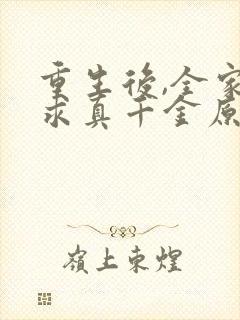 重生後,全家
求真千金原
嶺上東煌